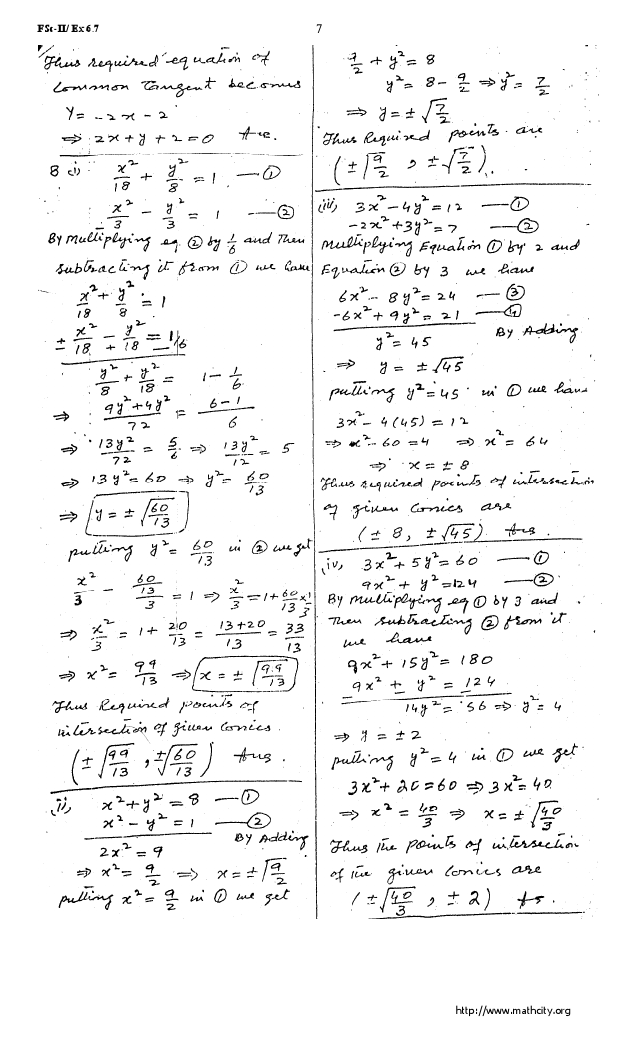 FSc-II/ Ex 6.7
7
Thus required equation of
Common Tangent becomes
y = -2x - 2
⇒ 2x + y + 2 = 0 Ans.
8 i) x²/18 + y²/8 = 1 — ①
x²/3 - y²/3 = 1 — ②
By Multiplying eq ② by 1/6 and Then
subtracting it from ① we have
x²/18 + y²/8 = 1
± x²/18 -+ y²/18 = 1/6
y²/8 + y²/18 = 1 - 1/6
⇒ (9y² + 4y²)/72 = (6-1)/6
⇒ 13y²/72 = 5/6 ⇒ 13y²/12 = 5
⇒ 13y² = 60 ⇒ y² = 60/13
⇒ y = ± √(60/13)
putting y² = 60/13 in ② we get
x²/3 - (60/13)/3 = 1 ⇒ x²/3 = 1 + 60/13 × 1/3
⇒ x²/3 = 1 + 20/13 = (13+20)/13 = 33/13
⇒ x² = 99/13 ⇒ x = ± √(99/13)
Thus Required points of
intersection of given Conics.
(± √(99/13) , ± √(60/13)) Ans.
(ii) x² + y² = 8 — ①
x² - y² = 1 — ②
By Adding
2x² = 9
⇒ x² = 9/2 ⇒ x = ± √(9/2)
putting x² = 9/2 in ① we get
9/2 + y² = 8
y² = 8 - 9/2 ⇒ y² = 7/2
⇒ y = ± √(7/2)
Thus Required points are
(± √(9/2) , ± √(7/2)).
(iii) 3x² - 4y² = 12 — ①
-2x² + 3y² = 7 — ②
Multiplying Equation ① by 2 and
Equation ② by 3 we have
6x² - 8y² = 24 — ③
-6x² + 9y² = 21 — ④
By Adding
y² = 45
⇒ y = ± √45
putting y² = 45 in ① we have
3x² - 4(45) = 12
⇒ x² - 60 = 4 ⇒ x² = 64
⇒ x = ± 8
Thus required points of intersection
of given Conics are
(± 8, ± √45) Ans.
iv) 3x² + 5y² = 60 — ①
9x² + y² = 124 — ②
By Multiplying eq ① by 3 and
Then subtracting ② from it
we have
9x² + 15y² = 180
9x² ± y² = 124
14y² = 56 ⇒ y² = 4
⇒ y = ± 2
putting y² = 4 in ① we get
3x² + 20 = 60 ⇒ 3x² = 40
⇒ x² = 40/3 ⇒ x = ± √(40/3)
Thus The points of intersection
of The given Conics are
(± √(40/3) , ± 2)
http://www.mathcity.org